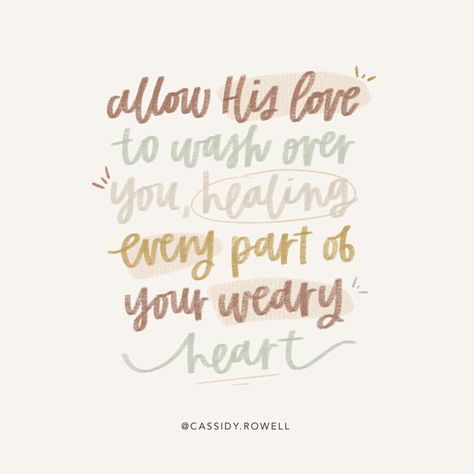 allow His love
to wash over
you, healing
every part of
your weary
heart
@CASSIDY.ROWELL